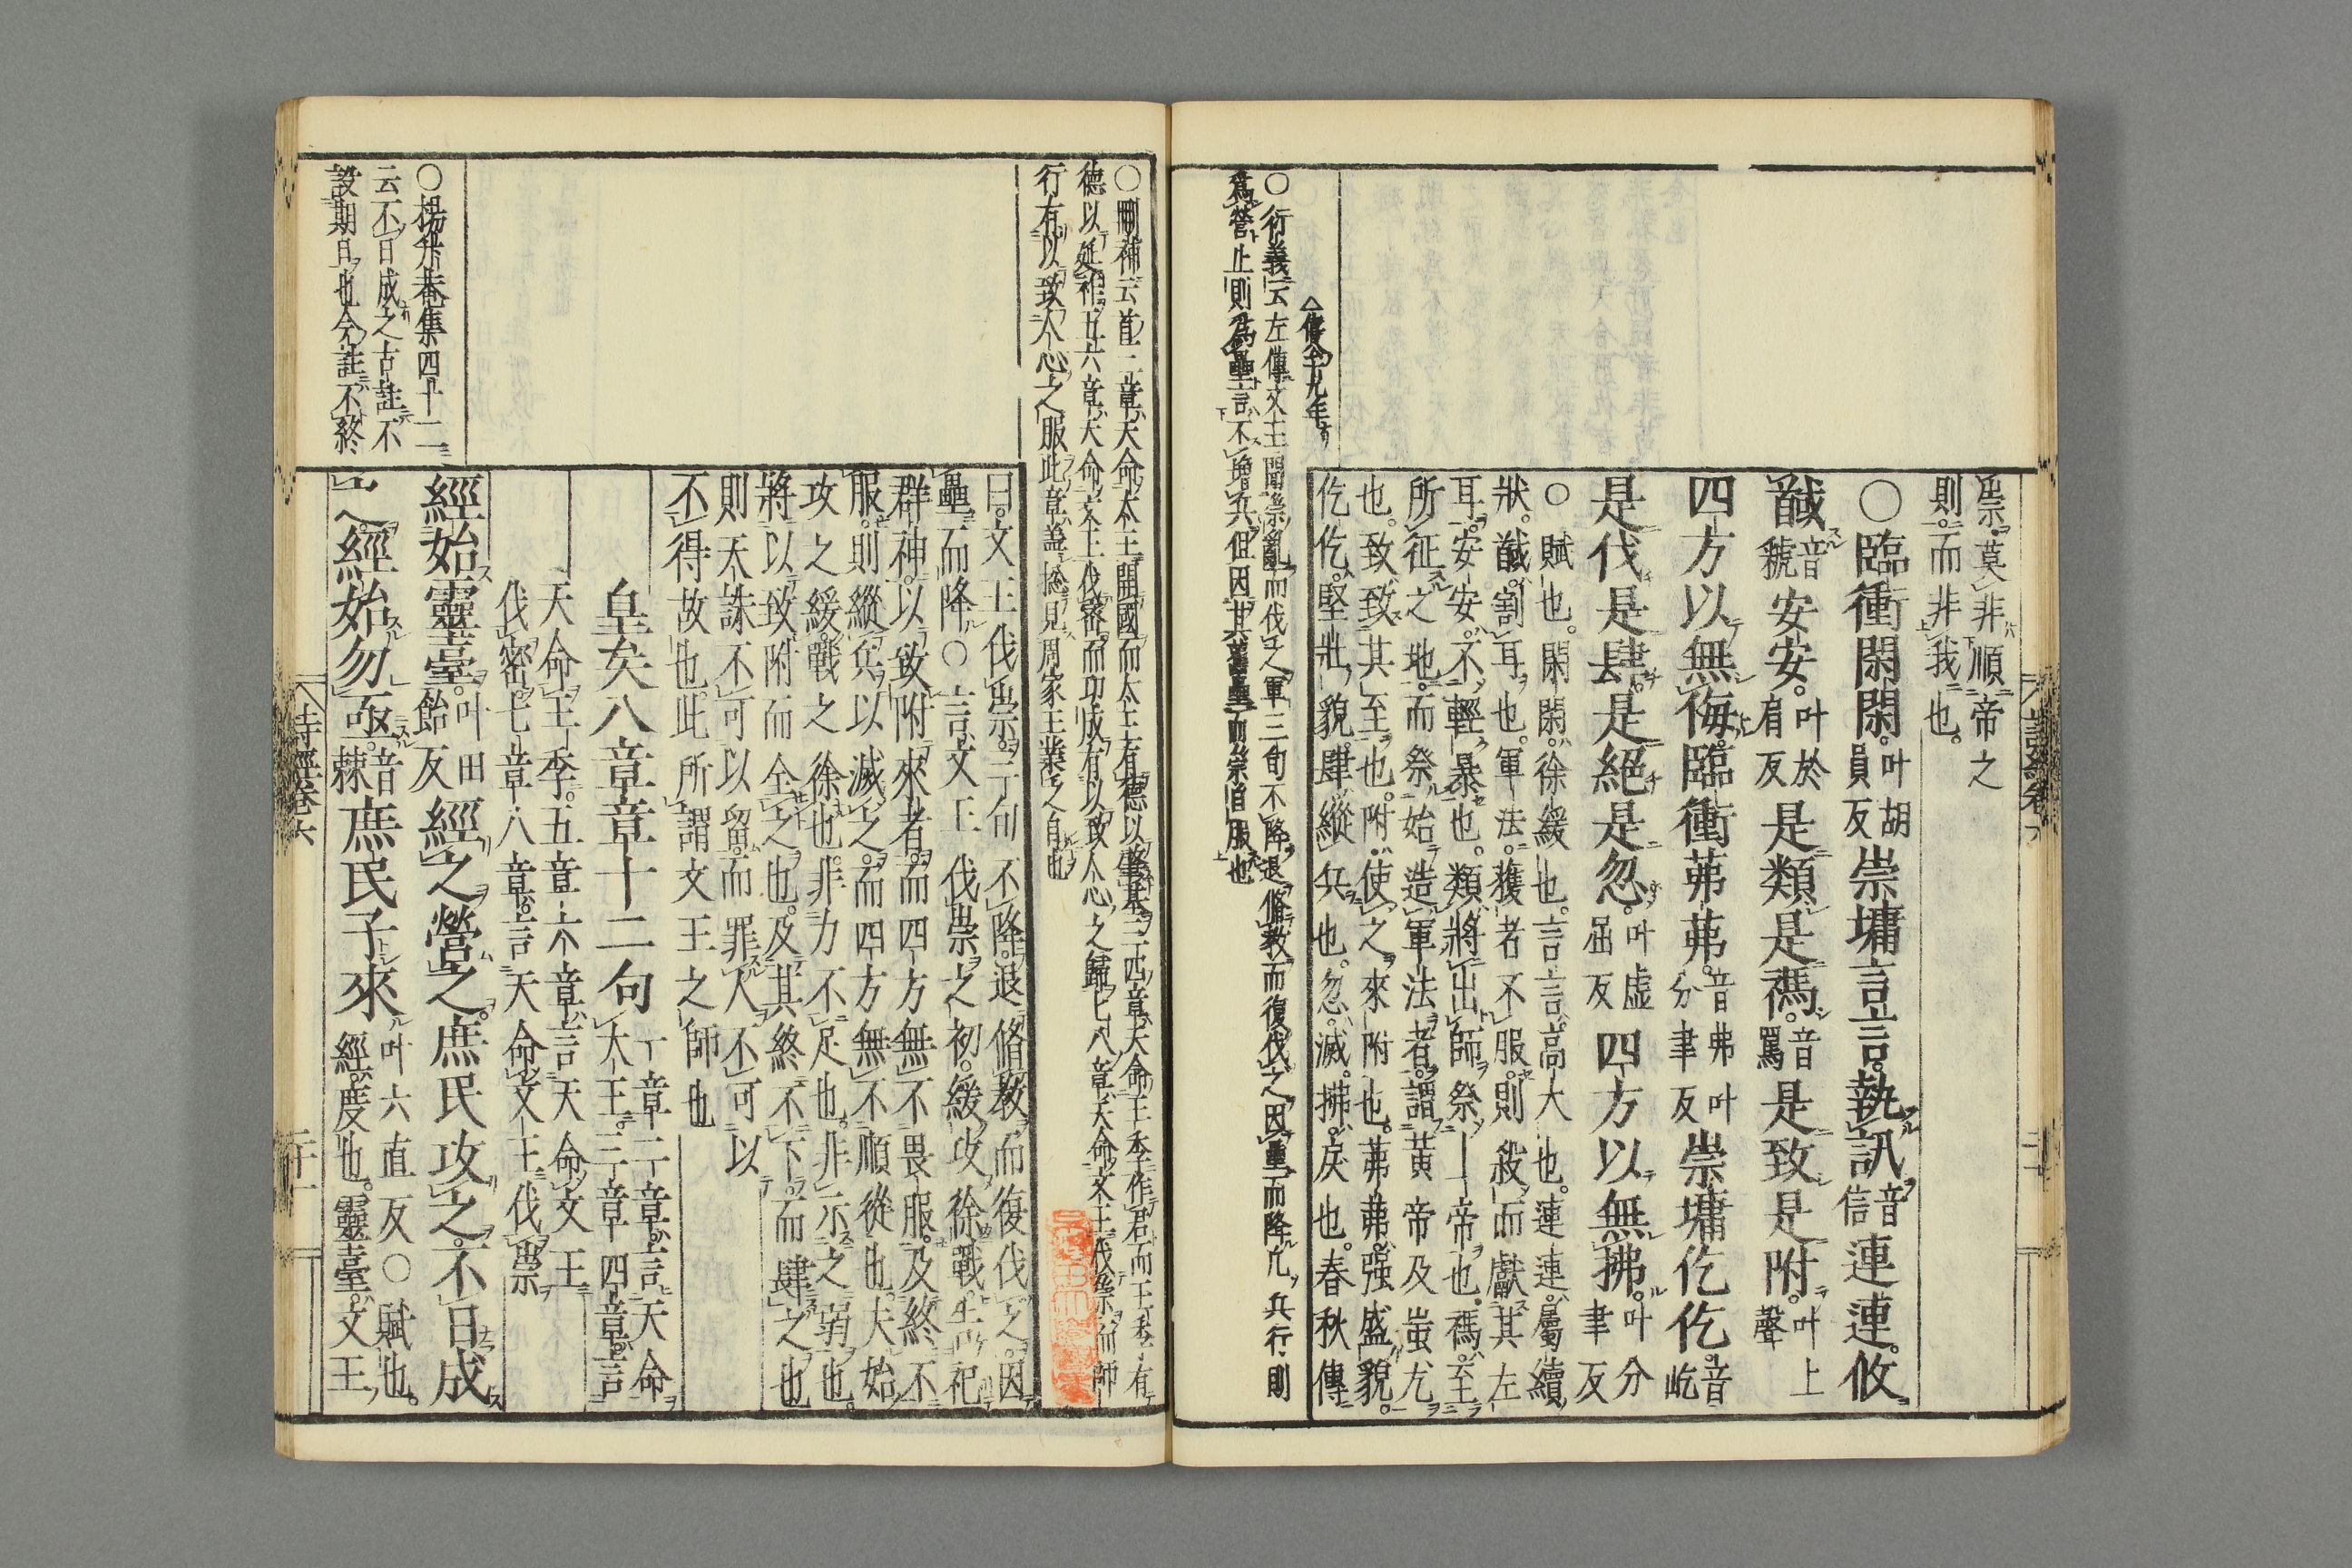 崇莫非順帝之
則而非我也
○臨衝閑閑叶胡員反崇墉言言執訊音信連連攸
馘音虢安安叶於肩反是類是禡音罵是致是附叶上聲
四方以無侮臨衝茀茀音弗叶分聿反崇墉仡仡音屹
是伐是肆是絕是忽叶虚屈反四方以無拂叶分聿反
○賦也閑閑徐緩也言言高大也連連屬續
狀馘割耳也軍法獲者不服則殺而獻其左
耳安安不輕暴也類將出師祭上帝也禡至
所征之地而祭始造軍法者謂黃帝及蚩尤
也致致其至也附使之來附也茀茀强盛貌
仡仡堅壯貌肆縱兵也忽滅拂戾也春秋傳
△僖公十九年
○衍義云左傳文王聞崇亂而伐之軍三旬不降退脩教而復伐之因壘而降凡兵行則
爲營止則爲壘言不增兵但因其舊壘而崇自服也
詩經卷六
○刪補云首二章天命太王開國而太王有德以肇基三四章天命王季作君而王季有
德以延祚五六章天命文王伐密而功成有以致人心之歸七八章天命文王伐崇而師
行有以致人心之服此章蓋總見周家王業之自也
曰文王伐崇三旬不降退脩教而復伐之因
壘而降○言文王伐崇之初緩攻徐戰告祀
群神以致附來者而四方無不畏服及終不
服則縱兵以滅之而四方無不順從也夫始
攻之緩戰之徐也非力不足也非示之弱也
將以致附而全之也及其終不下而肆之也
則天誅不可以留而罪人不可以
不得故也此所謂文王之師也
皇矣八章章十二句一章二章言天命
太王三章四章言
天命王季五章六章言天命文王
伐密七章八章言天命文王伐崇
○楊升菴集四十二
云不日成之古註不
設期日也今註不終
經始靈臺叶田飴反經之營之庶民攻之不日成
之經始勿亟音棘庶民子來叶六直反○賦也
經度也靈臺文王
詩經卷六
二十一